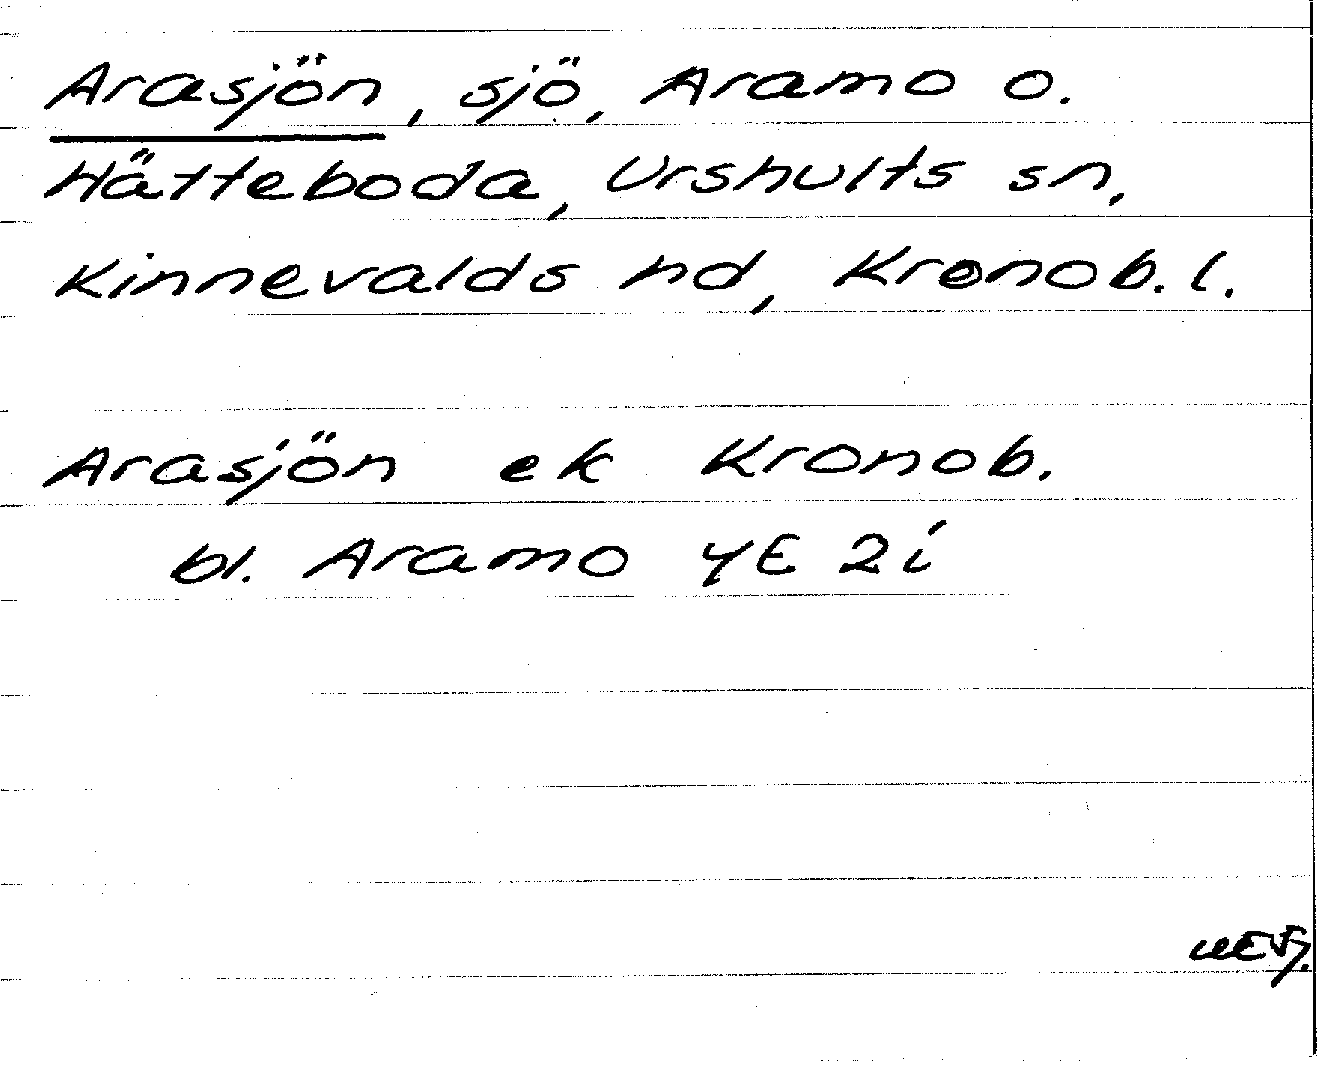 Arasjön, sjö, Aramo o.
Hätteboda, Urshults sn,
Kinnevalds hd, Kronob. l.
Arasjön ek Kronob.
bl. Aramo 4E 2i